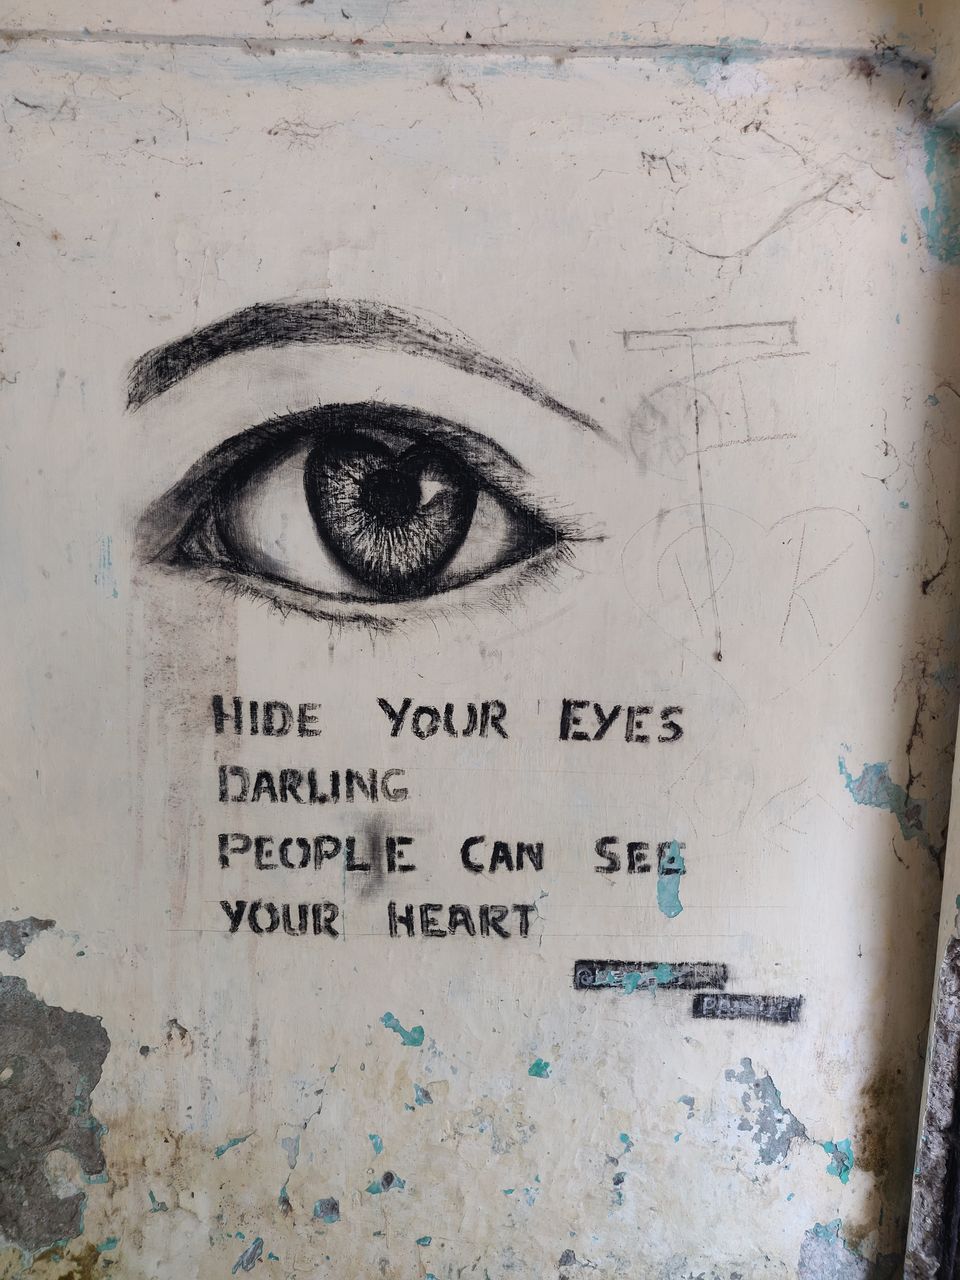 HIDE YOUR EYES
DARLING
PEOPLE CAN SEE
YOUR HEART
K